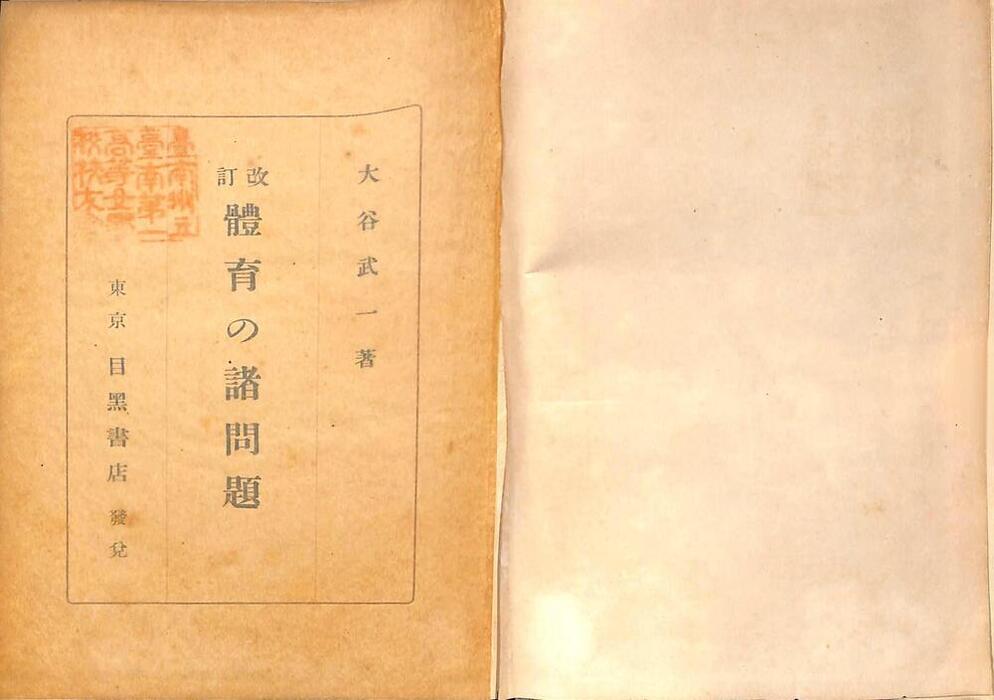 大谷武一著
改訂
體育の諸問題
東京 目黑書店 發兌
臺南州立
臺南第二
高等女學